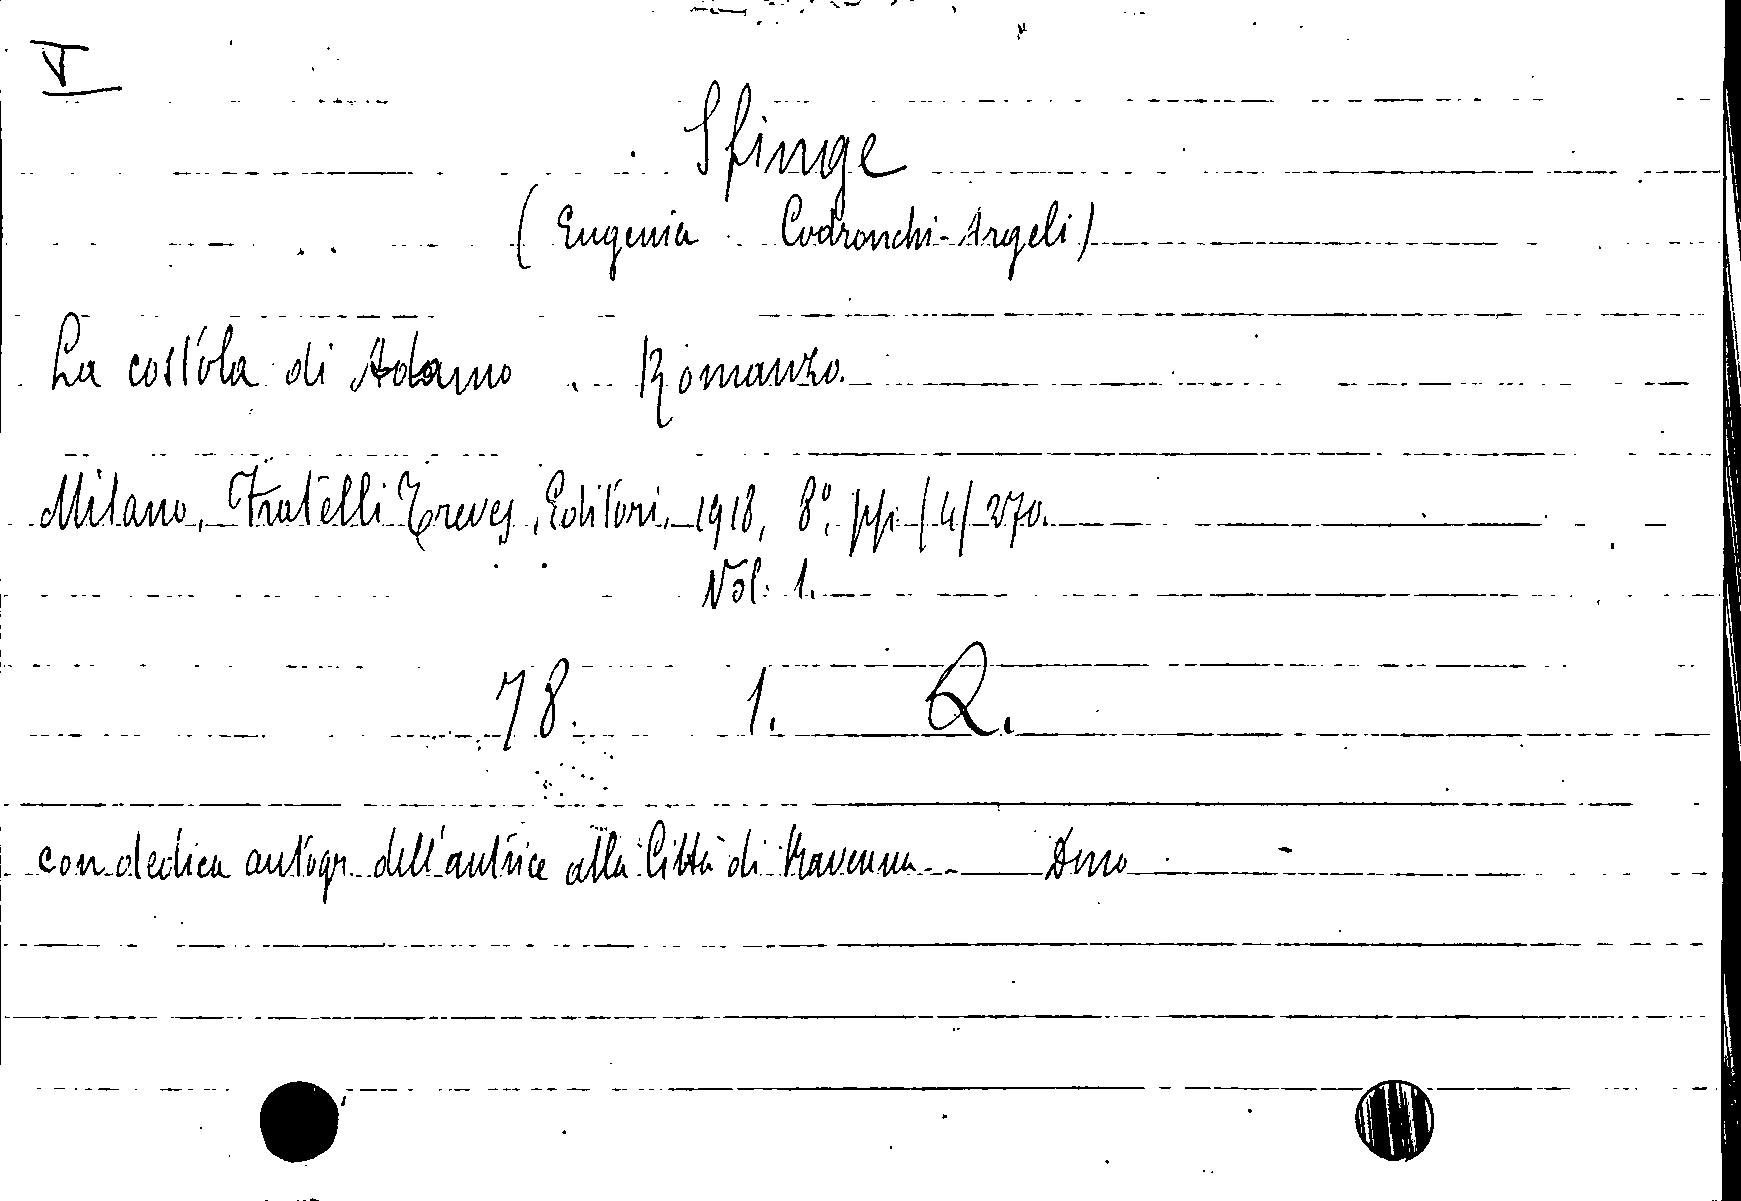 V
Sfinge
(Eugenia Codronchi-Argeli)
La costola di Adamo. Romanzo.
Milano, Fratelli Treves, Editori, 1918, 8°, pp. /4/ 270.
Vol. 1.
78. 1. Q.
con dedica autogr. dell'autrice alla Città di Ravenna - Dono